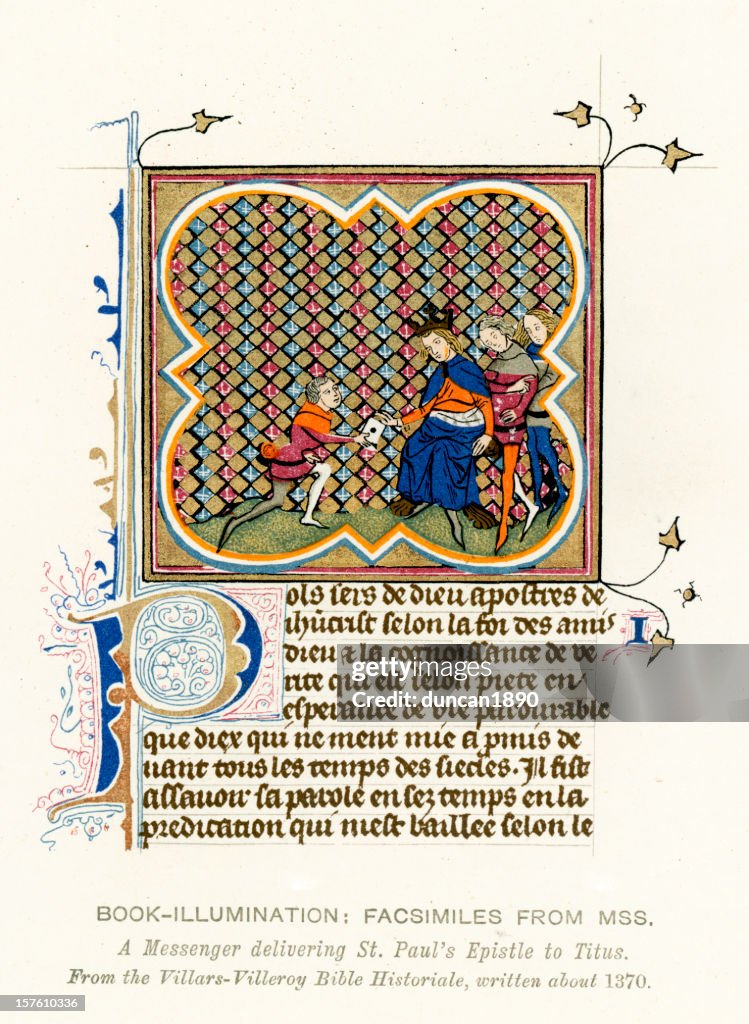 Pols sers de dieu apostres de
ihucrist selon la foi des amis
dieu & la connoissance de ve
I
rite qui est selon piete en
esperance de vie pardurable
que diex qui ne ment mie a pmis de
uant tous les temps des siecles. Il fist
assauoir sa parole en sez temps en la
predication qui mest baillee selon le
gettyimages
duncan1890
BOOK-ILLUMINATION: FACSIMILES FROM MSS.
A Messenger delivering St. Paul's Epistle to Titus.
From the Villars-Villeroy Bible Historiale, written about 1370.
157610336